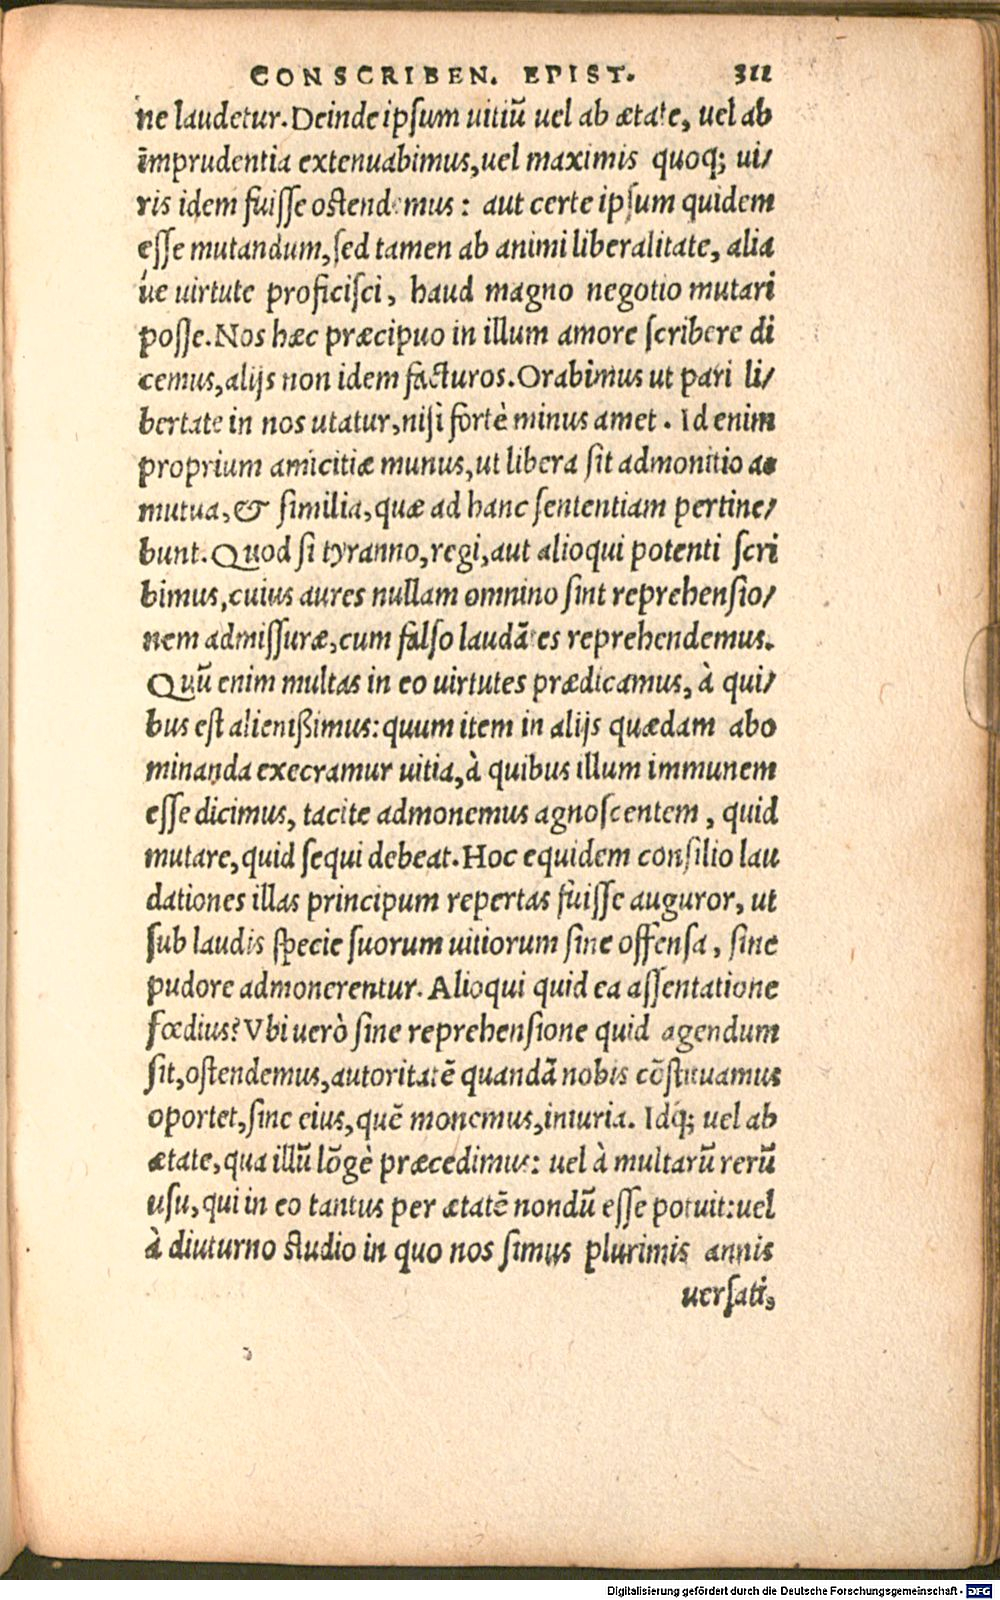 CONSCRIBEN. EPIST. 311
ne laudetur. Deinde ipsum uitiũ uel ab ætate, uel ab
imprudentia extenuabimus, uel maximis quoq; ui/
ris idem fuisse ostendemus: aut certe ipsum quidem
esse mutandum, sed tamen ab animi liberalitate, alia
úe uirtute proficisci, haud magno negotio mutari
posse. Nos hæc præcipuo in illum amore scribere di
cemus, alijs non idem facturos. Orabimus ut pari li/
bertate in nos utatur, nisi fortè minus amet. Id enim
proprium amicitiæ munus, ut libera sit admonitio ac
mutua, & similia, quæ ad hanc sententiam pertine/
bunt. Quod si tyranno, regi, aut alioqui potenti scri
bimus, cuius aures nullam omnino sint reprehensio/
nem admissuræ, cum falso laudãtes reprehendemus.
Quũ enim multas in eo uirtutes prædicamus, à qui/
bus est alienißimus: quum item in alijs quædam abo
minanda execramur uitia, à quibus illum immunem
esse dicimus, tacite admonemus agnoscentem, quid
mutare, quid sequi debeat. Hoc equidem consilio lau
dationes illas principum repertas fuisse auguror, ut
sub laudis specie suorum uitiorum sine offensa, sine
pudore admonerentur. Alioqui quid ea assentatione
fœdius? Vbi uerò sine reprehensione quid agendum
sit, ostendemus, autoritatẽ quandã nobis cõstituamus
oportet, sine eius, quẽ monemus, iniuria. Idq; uel ab
ætate, qua illũ lõgè præcedimus: uel à multarũ rerũ
usu, qui in eo tantus per ætatẽ nondũ esse potuit: uel
à diuturno studio in quo nos simus plurimis annis
uersati,
Digitalisierung gefördert durch die Deutsche Forschungsgemeinschaft - DFG